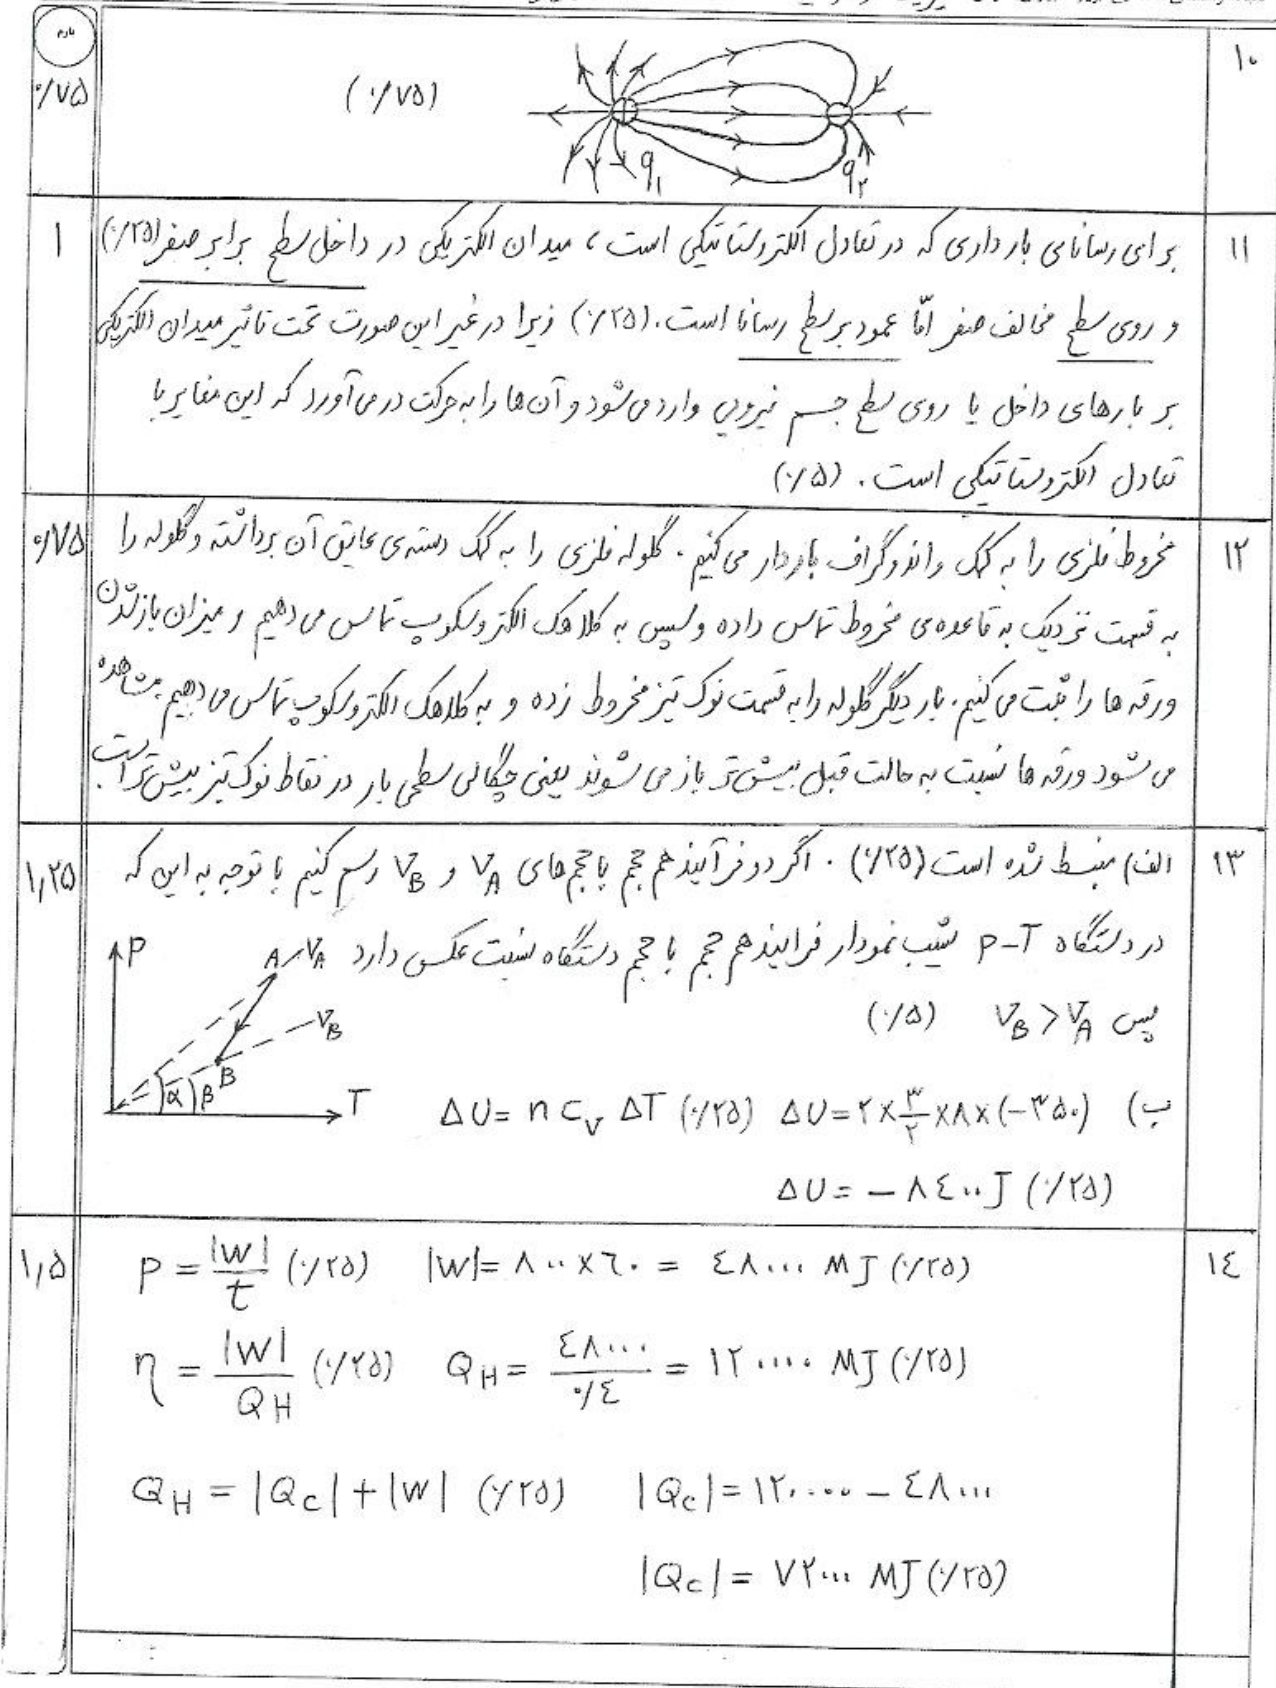 بارم
۱۰
۰/۷۵
(۰/۷۵)
q₁ q₂
۱۱
۱
برای رسانای بارداری که در تعادل الکتروستاتیکی است، میدان الکتریکی در داخل سطح برابر صفر (۰/۲۵)
و روی سطح مخالف صفر امّا عمود بر سطح رسانا است. (۰/۲۵) زیرا در غیر این صورت تحت تاثیر میدان الکتریکی
بر بارهای داخل یا روی سطح جسم نیرویی وارد می‌شود و آن‌ها را به حرکت در می‌آورد که این مغایر با
تعادل الکتروستاتیکی است. (۰/۵)
۱۲
۰/۷۵
مخروط فلزی را به کمک واندوگراف باردار می‌کنیم. گلوله فلزی را به کمک دسته‌ی عایق آن برداشته و گلوله را
به قسمت نزدیک به قاعده‌ی مخروط تماس داده و سپس به کلاهک الکتروسکوپ تماس می‌دهیم و میزان باز شدن
ورقه‌ها را ثبت می‌کنیم. بار دیگر گلوله را به قسمت نوک تیز مخروط زده و به کلاهک الکتروسکوپ تماس می‌دهیم. مشاهده
می‌شود ورقه‌ها نسبت به حالت قبل بیش‌تر باز می‌شوند یعنی چگالی سطحی بار در نقاط نوک تیز بیش‌تر است
۱۳
۱,۲۵
الف) منبسط شده است (۰/۲۵). اگر دو فرآیند هم حجم با حجم‌های V_A و V_B رسم کنیم با توجه به این که
در دستگاه P-T شیب نمودار فرایند هم حجم با حجم دستگاه نسبت عکس دارد
پس V_B > V_A (۰/۵)
P A V_A V_B B α β T
ب) ΔU = n C_V ΔT (۰/۲۵) ΔU = ۲ × ۳/۲ × ۸ × (−۳۵۰)
ΔU = − ۸٤۰۰ J (۰/۲۵)
۱٤
۱,۵
P = |W|/t (۰/۲۵) |W| = ۸۰۰ × ٦۰ = ٤۸۰۰۰ MJ (۰/۲۵)
η = |W|/Q_H (۰/۲۵) Q_H = ٤۸۰۰۰/۰/٤ = ۱۲۰۰۰۰ MJ (۰/۲۵)
Q_H = |Q_C| + |W| (۰/۲۵) |Q_C| = ۱۲۰۰۰۰ − ٤۸۰۰۰
|Q_C| = ۷۲۰۰۰ MJ (۰/۲۵)